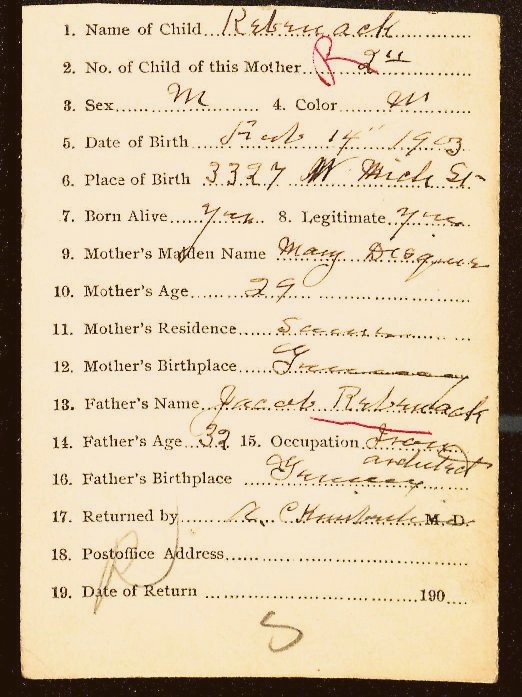 1. Name of Child
2. No. of Child of this Mother 2"
3. Sex M 4. Color W
5. Date of Birth Feb 14" 1903
6. Place of Birth 3327 W Mich St
7. Born Alive Yes 8. Legitimate Yes
9. Mother's Maiden Name Mary
10. Mother's Age 29
11. Mother's Residence Same
12. Mother's Birthplace Germany
13. Father's Name Jacob
14. Father's Age 32 15. Occupation Iron
16. Father's Birthplace Germany
17. Returned by M.D.
18. Postoffice Address
19. Date of Return 190